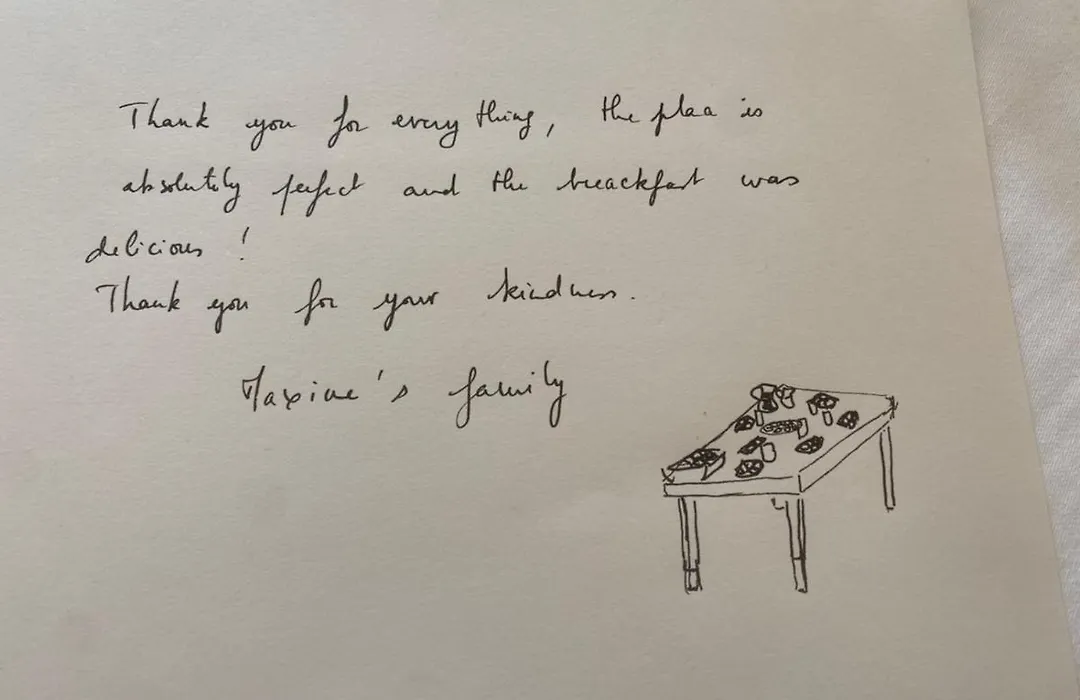 Thank you for every thing, the plaa is
absolutely perfect and the breackfast was
delicious !
Thank you for your kindness.
Maxime's family